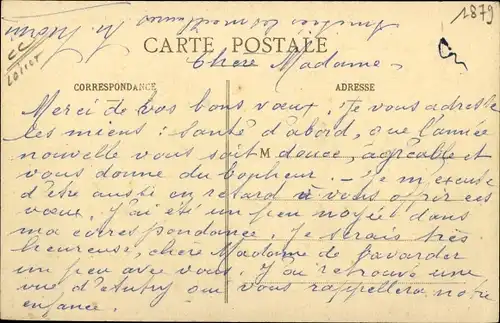 1879
CC
Loiret
Amitiés
CARTE POSTALE
Chère Madame,
CORRESPONDANCE
ADRESSE
Merci de vos bons vœux. Je vous adresse
les miens : Santé d'abord, que l'année
nouvelle vous soit M douce, agréable et
vous donne du bonheur. - Je m'excuse
d'être aussi en retard à vous offrir ces
vœux. J'ai été un peu noyée dans
ma correspondance. Je serais très
heureuse, chère Madame de bavarder
un peu avec vous. J'ai retrouvé une
vue d'Autry qui vous rappellera notre
enfance.